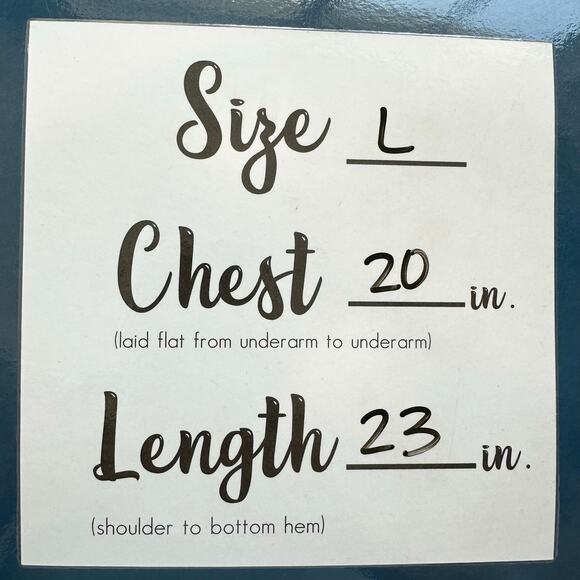 Size L
Chest 20 in.
(laid flat from underarm to underarm)
Length 23 in.
(shoulder to bottom hem)